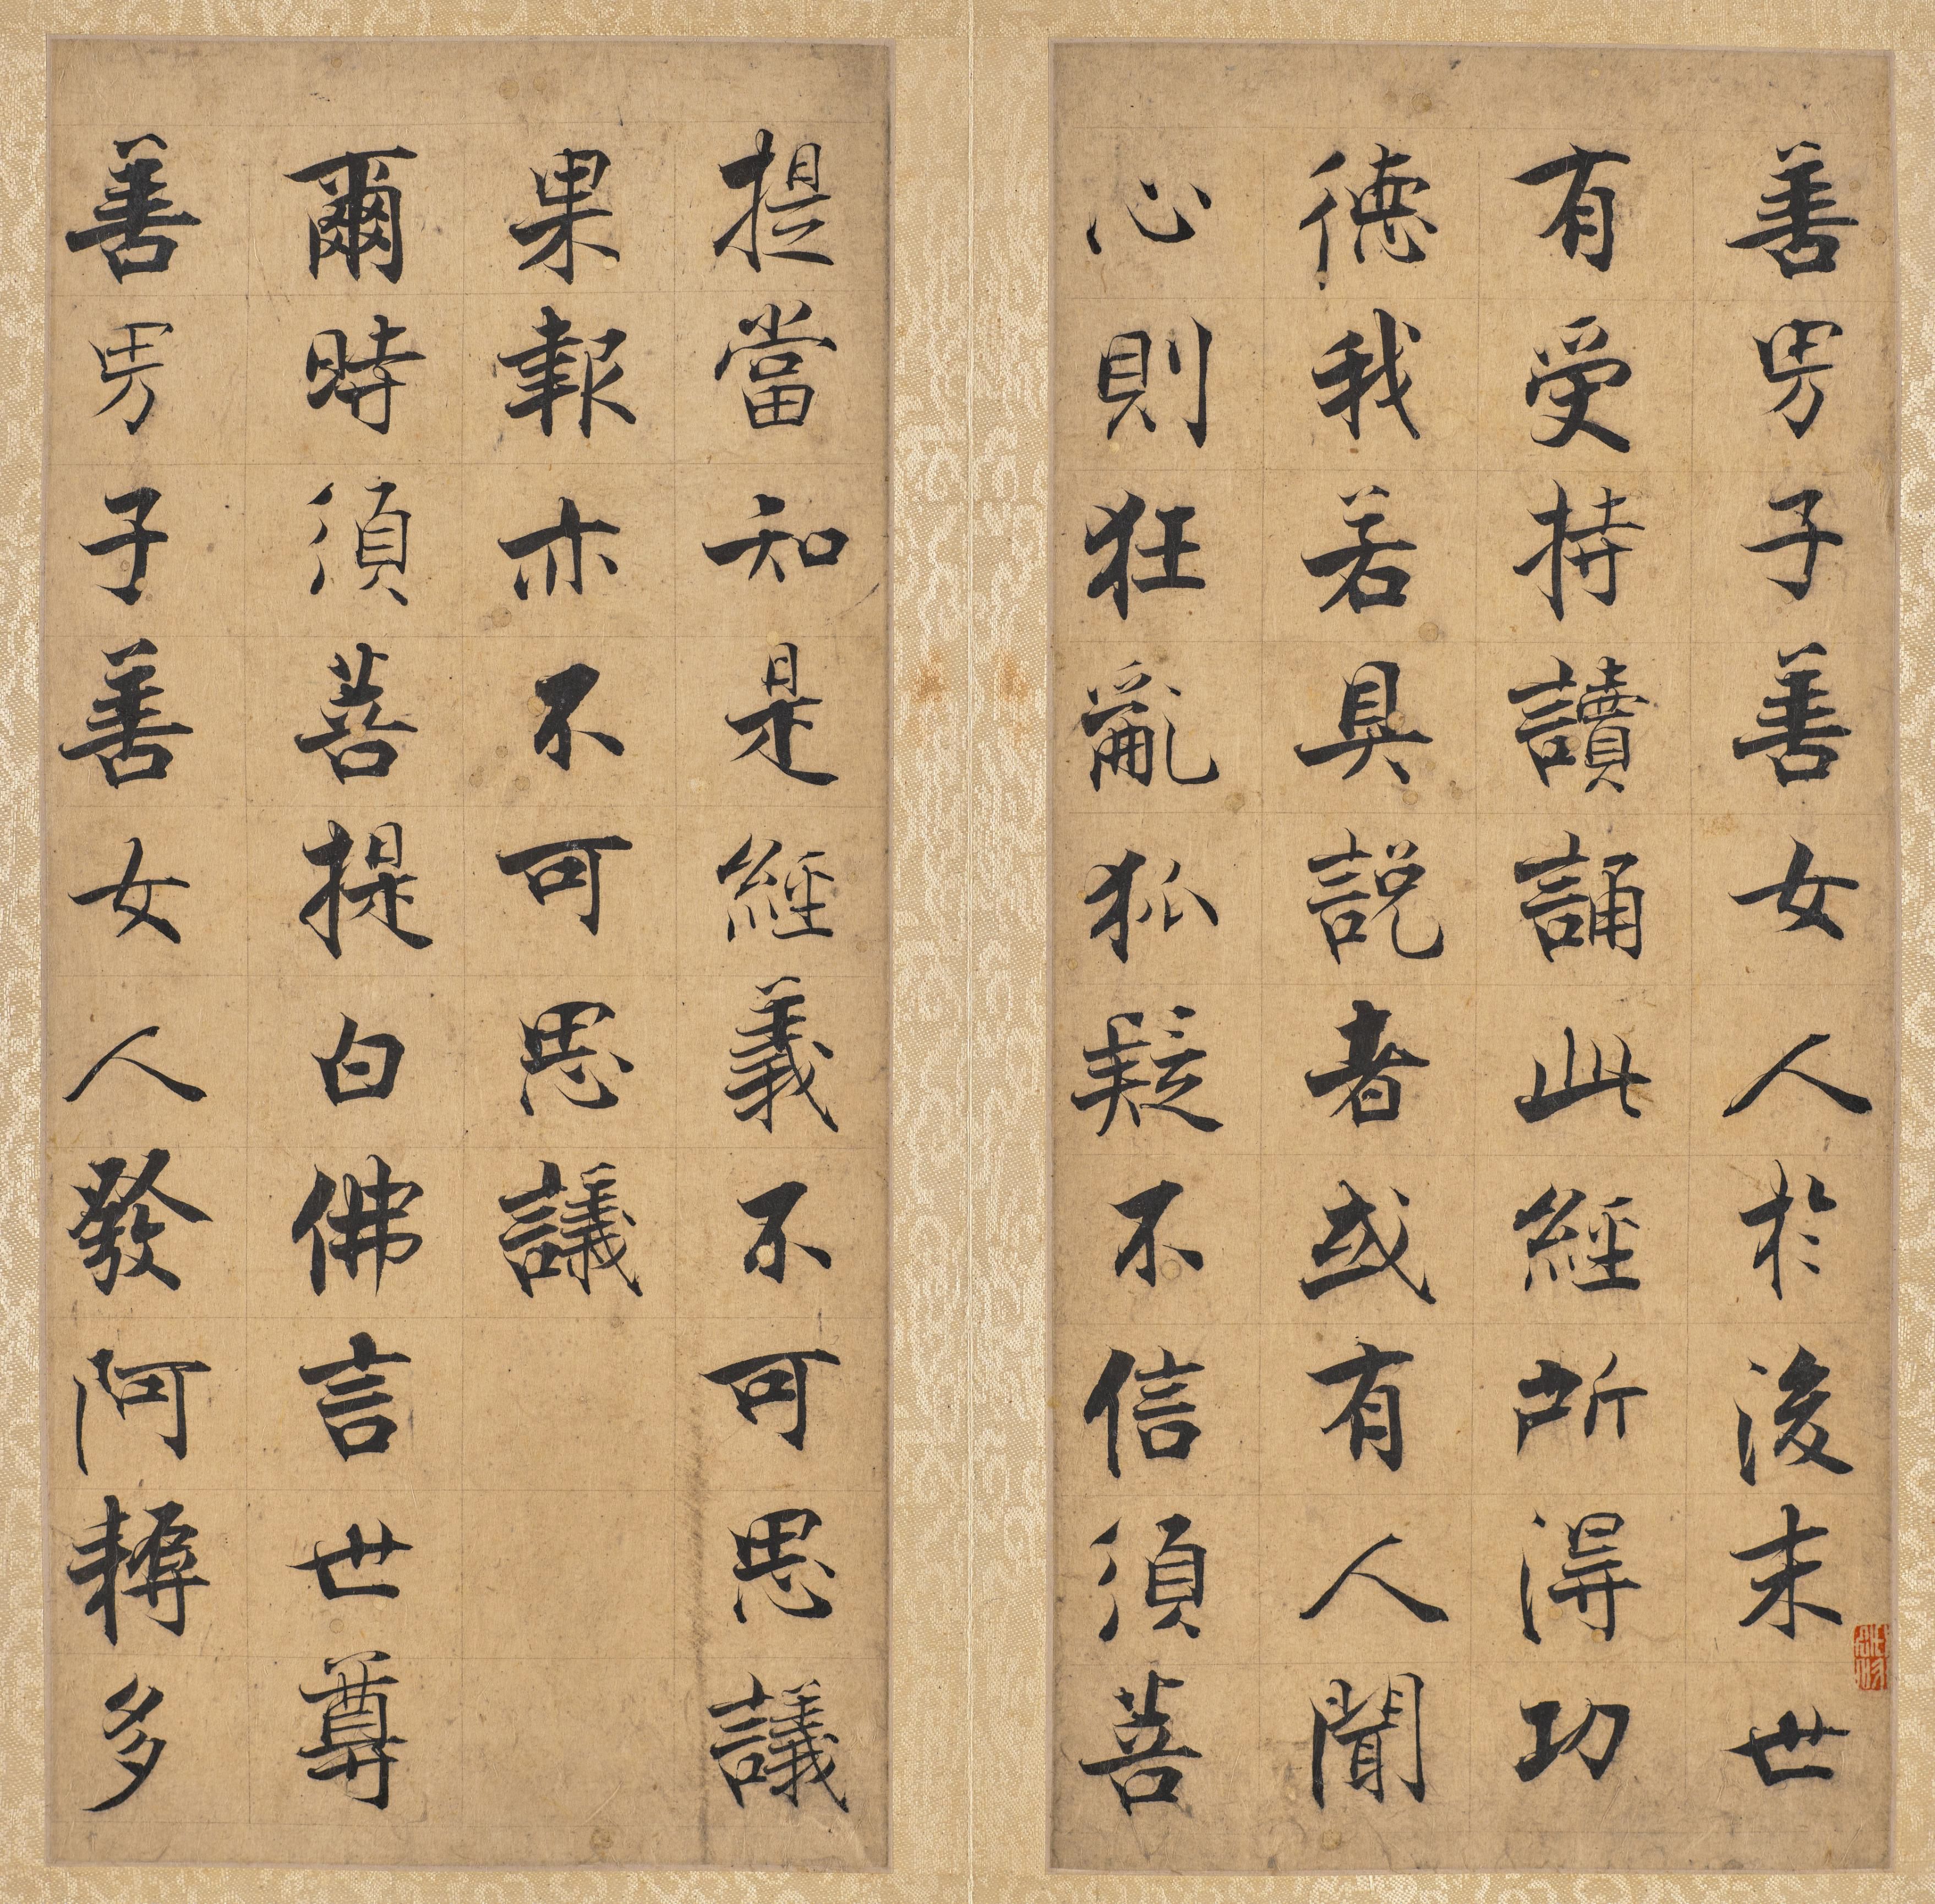 善男子善女人於後末世
有受持讀誦此經所得功
德我若具說者或有人聞
心則狂亂狐疑不信須菩
提當知是經義不可思議
果報亦不可思議
爾時須菩提白佛言世尊
善男子善女人發阿耨多